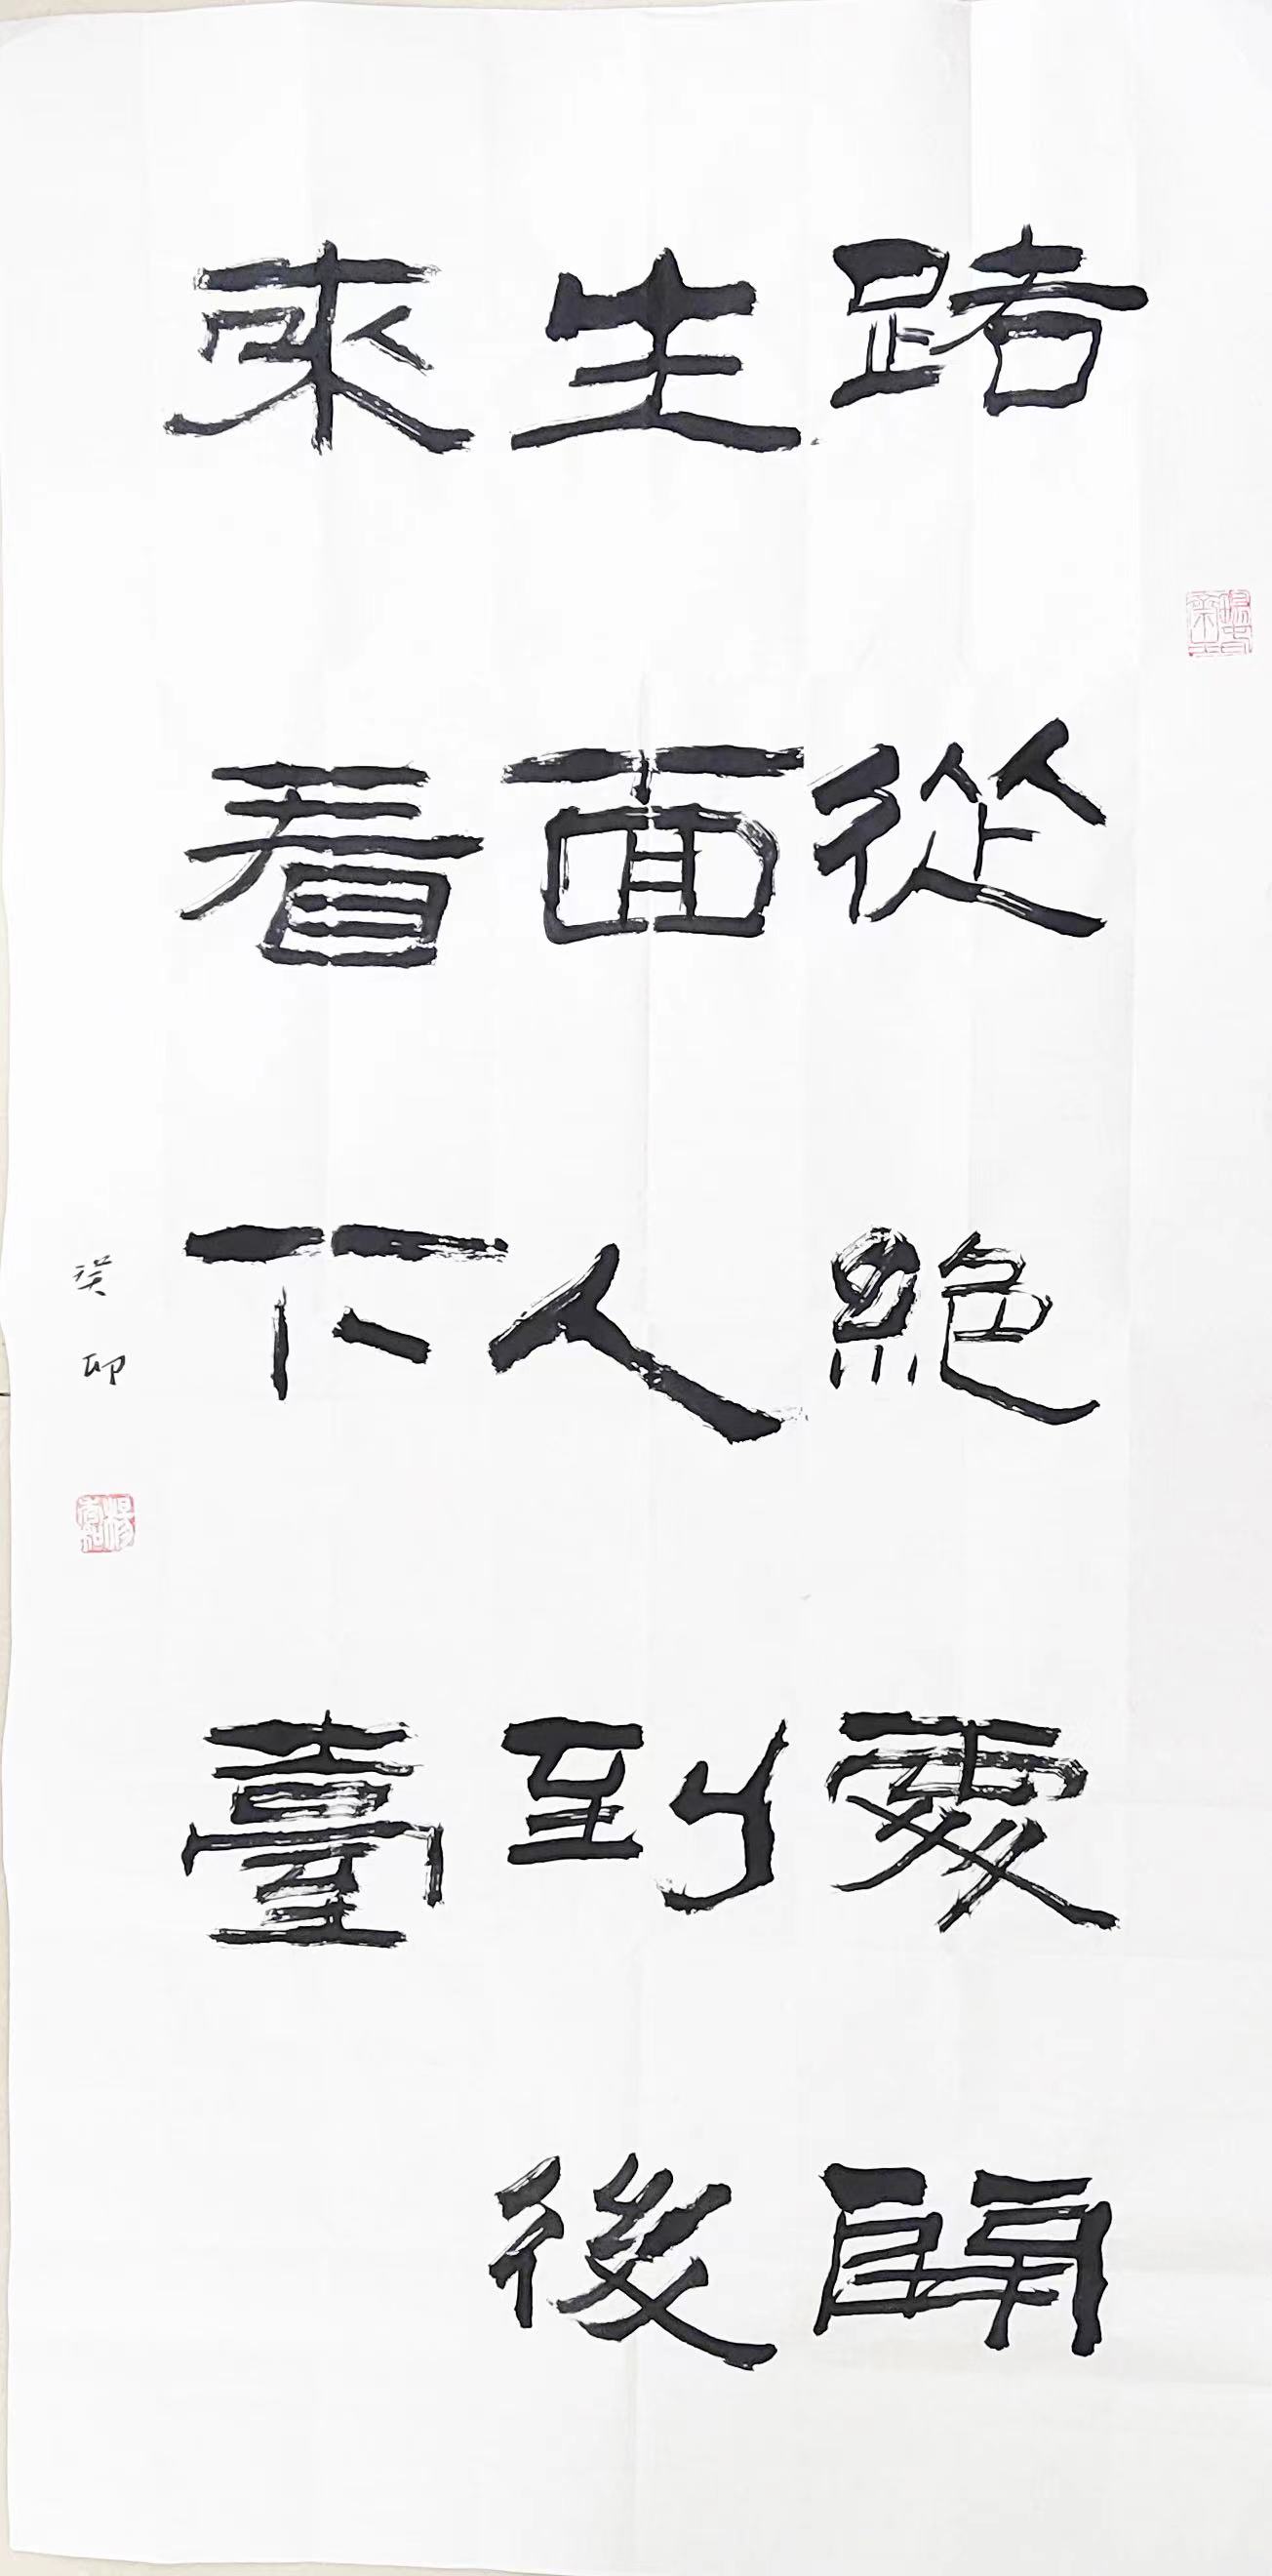 路從絕處開
生面人到後
來看下臺
癸卯